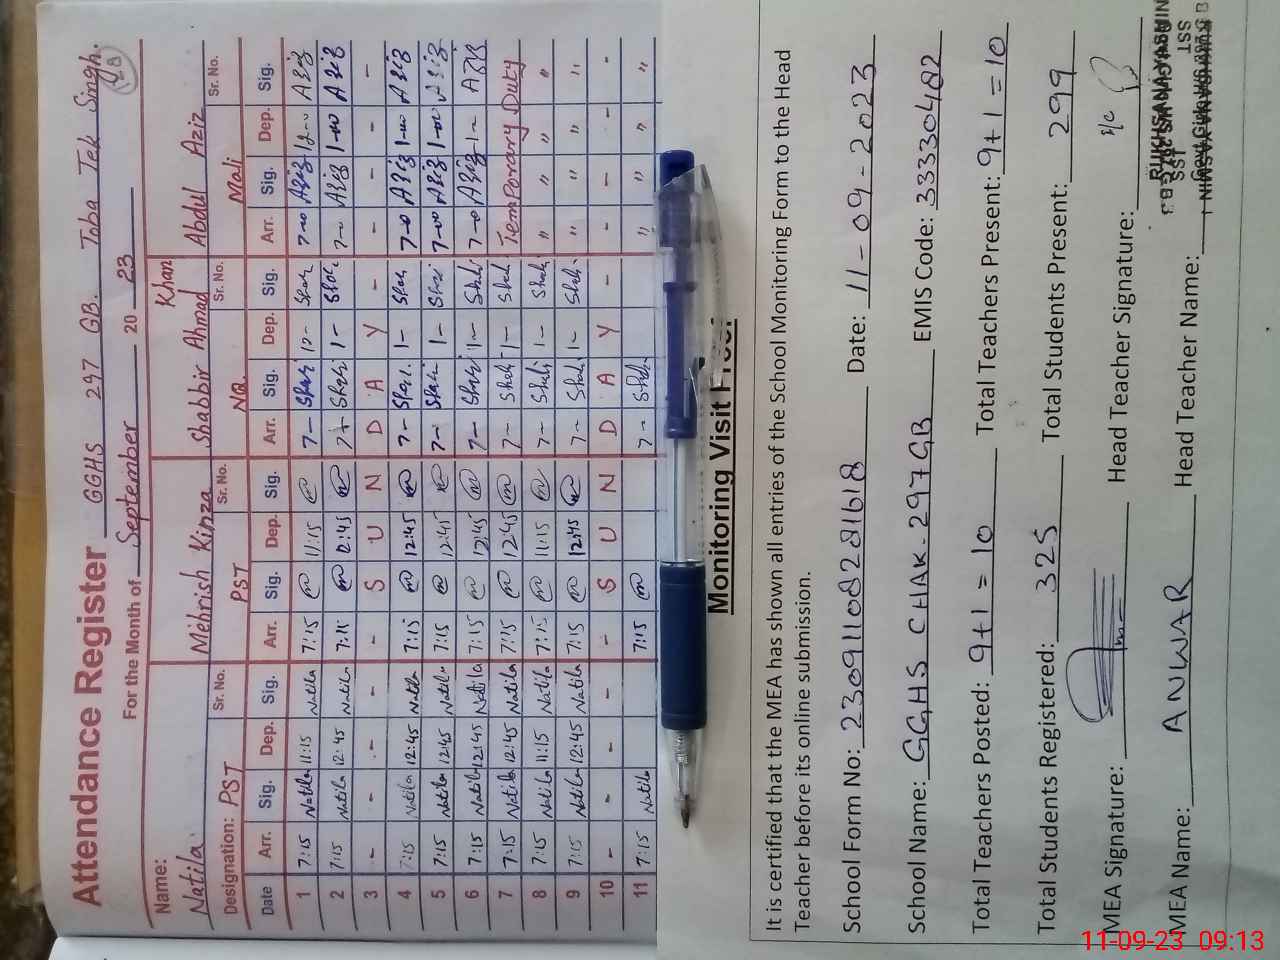 Attendance Register GGHS 297 GB. Toba Tek Singh.
128
For the Month of September 2023
Name:
Natila Mehrish Kinza Shabbir Ahmad Khan Abdul Aziz
Designation: PST Sr. No. PST Sr. No. NQ Sr. No. Mali Sr. No.
Date Arr. Sig. Dep. Sig. Arr. Sig. Dep. Sig. Arr. Sig. Dep. Sig. Arr. Sig. Dep. Sig.
1 7:15 Natila 11:15 Natila 7:15 11:15 7- 12- 7-00 Aziz 12-00 Aziz
2 7:15 Natila 12:45 Natila 7:15 12:45 7- 1- 7- Aziz 1-00 Aziz
3 - - - - - S U N D A Y - - - - -
4 7:15 Natila 12:45 Natila 7:15 12:45 7- 1- 7-00 Aziz 1-00 Aziz
5 7:15 Natila 12:45 Natila 7:15 12:45 7- 1- 7-00 Aziz 1-00 Aziz
6 7:15 Natila 12:45 Natila 7:15 12:45 7- 1- 7-0 Aziz 1-
7 7:15 Natila 12:45 Natila 7:15 12:45 7- 1- Temporary Duty
8 7:15 Natila 11:15 Natila 7:15 11:15 7- 1- " " " "
9 7:15 Natila 12:45 Natila 7:15 12:45 7- 1- " " " "
10 - - - - - S U N D A Y - - - - -
11 7:15 Natila 7:15 7- " " " "
Monitoring Visit Proof
It is certified that the MEA has shown all entries of the School Monitoring Form to the Head
Teacher before its online submission.
School Form No: 23091108281618 Date: 11-09-2023
School Name: GGHS CHAK-297GB EMIS Code: 33330482
Total Teachers Posted: 9+1=10 Total Teachers Present: 9+1=10
Total Students Registered: 325 Total Students Present: 299
MEA Signature: Head Teacher Signature:
MEA Name: ANWAR Head Teacher Name:
RUKHSANA YASMIN
SST
11-09-23 09:13